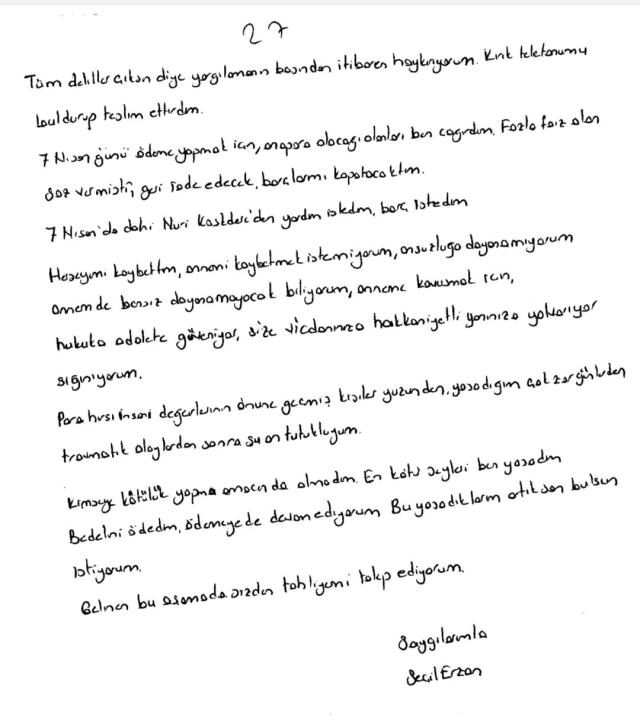 27
Tüm deliller çıksın diye yargılamanın başından itibaren haykırıyorum. Kırık telefonumu
buldurup teslim ettirdim.
7 Nisan günü ödeme yapmak için, anapara alacağı olanları ben çağırdım. Fazla faiz alan
söz vermişti, geri iade edecek, borçlarımı kapatacaktım.
7 Nisan'da dahi Nuri 'den yardım istedim, borç istedim
Herşeyimi kaybettim, annemi kaybetmek istemiyorum, onsuzluğa dayanamıyorum
annem de bensiz dayanamayacak biliyorum, anneme kavuşmak için,
hukuka adalete güveniyor, size vicdanınıza hakkaniyetli yanınıza yalvarıyor
sığınıyorum.
Para hırsı insani değerlerinin önüne geçmiş kişiler yüzünden, yaşadığım çok zor günlerden
travmatik olaylardan sonra şu an tutukluyum.
Kimseye kötülük yapma amacında olmadım. En kötü şeyleri ben yaşadım
Bedelini ödedim, ödemeye de devam ediyorum Bu yaşadıklarım artık son bulsun
istiyorum.
Gelinen bu aşamada sizden tahliyemi talep ediyorum.
Saygılarımla
Seçil Erzan